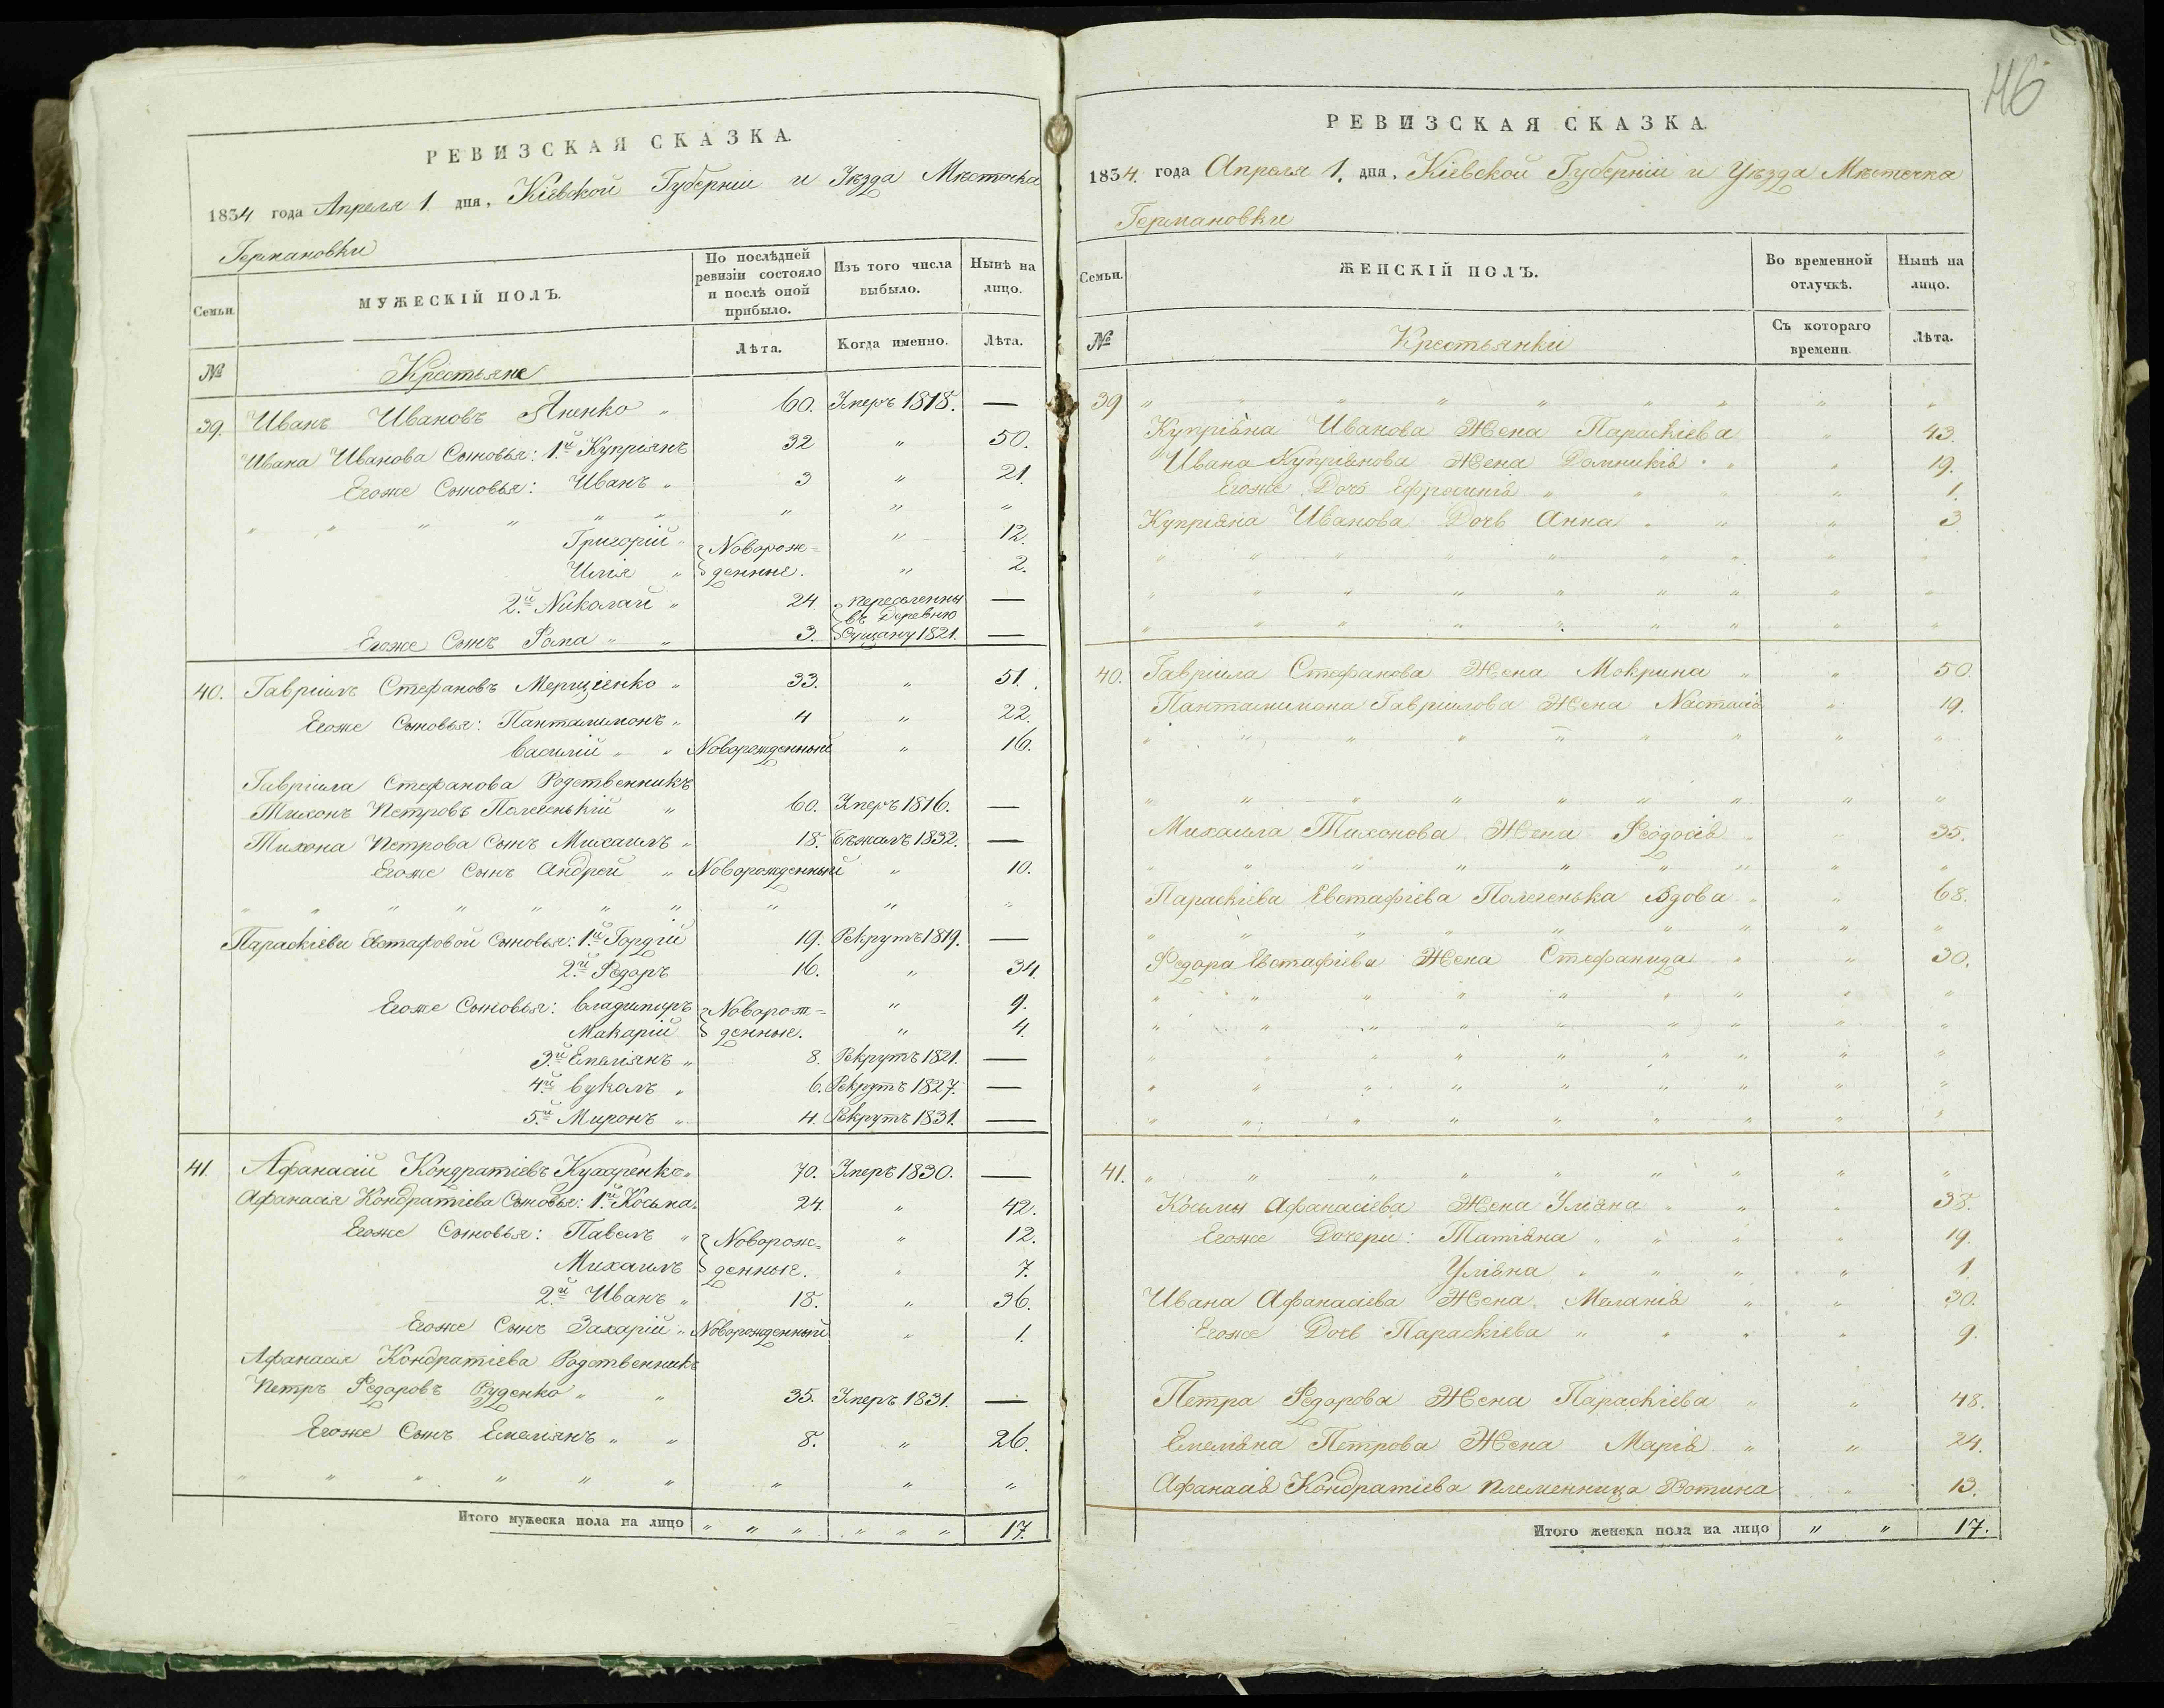 РЕВИЗСКАЯ СКАЗКА.
1834 года Апреля 1. дня, Кіевской Губерніи и Уѣзда Мѣстечка
Германовки
Семьи.
МУЖЕСКІЙ ПОЛЪ.
По послѣдней ревизіи состояло и послѣ оной прибыло.
Изъ того числа выбыло.
Нынѣ на лицо.
№
Крестьяне
Лѣта.
Когда именно.
Лѣта.
39. Иванъ Ивановъ Яненко „ 60. Умеръ 1818. —
Ивана Иванова Сыновья: 1.й Купріянъ 32 „ 50.
Егоже Сыновья: Иванъ „ 3 „ 21.
„ „ „ „ „ „ „ „ „
Григорій „ Новорож= „ 12.
Илія „ денные. „ 2.
2.й Николай „ 24. переселенны —
въ Деревню
Егоже Сынъ Фома „ „ 3. Сущану 1821. —
40. Гавріилъ Стефановъ Мерщіенко „ 33. „ 51.
Егоже Сыновья: Панталимонъ „ 4 „ 22.
Василій „ „ Новорожденный „ 16.
Гавріила Стефанова Родственникъ
Тихонъ Петровъ Полегенькій „ 60. Умеръ 1816. —
Тихона Петрова Сынъ Михаилъ „ 18. Бѣжалъ 1832. —
Егоже Сынъ Андрей „ Новорожденный „ 10.
„ „ „ „ „ „ „ „ „ „
Параскіеви Евстафовой Сыновья: 1.й Гордій 19. Рекрутъ 1819. —
2.й Федоръ 16. „ 34.
Егоже Сыновья: Владимиръ Новорож= „ 9.
Макарій денные. „ 4.
3.й Емеліянъ „ 8. Рекрутъ 1821. —
4.й Вуколъ „ 6. Рекрутъ 1827. —
5.й Миронъ „ 4. Рекрутъ 1831. —
41. Афанасій Кондратіевъ Кухаренко „ 70. Умеръ 1830. —
Афанасія Кондратіева Сыновья: 1.й Косьма. 24. „ 42.
Егоже Сыновья: Павелъ „ Новорож= „ 12.
Михаилъ денные. „ 7.
2.й Иванъ „ 18. „ 36.
Егоже Сынъ Захарій „ Новорожденный „ 1.
Афанасія Кондратіева Родственникъ
Петръ Федоровъ Руденко „ „ 35. Умеръ 1831. —
Егоже Сынъ Емеліянъ „ „ 8. „ 26.
„ „ „ „ „ „ „ „ „
Итого мужеска пола на лицо „ „ „ „ „ „ „ 17.
46
РЕВИЗСКАЯ СКАЗКА.
1834. года Апреля 1. дня, Кіевской Губерніи и Уѣзда Мѣстечка
Германовки
Семьи.
ЖЕНСКІЙ ПОЛЪ.
Во временной отлучкѣ.
Нынѣ на лицо.
№
Крестьянки
Съ котораго времени.
Лѣта.
39 „ „ „ „ „ „ „ „ „
Купріяна Иванова Жена Параскіева „ 43.
Ивана Купріянова Жена Домникія „ „ 19.
Егоже Дочь Ефросинія „ „ „ „ 1.
Купріяна Иванова Дочь Анна „ „ „ 3
„ „ „ „ „ „ „ „ „
„ „ „ „ „ „ „ „ „
„ „ „ „ „ „ „ „ „
40. Гавріила Стефанова Жена Мокрина „ „ 50.
Панталимона Гавріилова Жена Настасія „ 19.
„ „ „ „ „ „ „ „ „
„ „ „ „ „ „ „ „ „
Михаила Тихонова Жена Феодосія „ „ 35.
„ „ „ „ „ „ „ „ „
Параскіева Евстафіева Полегенька Вдова „ „ 68.
„ „ „ „ „ „ „ „ „
Федора Евстафіева Жена Стефанида „ „ 30.
„ „ „ „ „ „ „ „ „
„ „ „ „ „ „ „ „ „
„ „ „ „ „ „ „ „ „
„ „ „ „ „ „ „ „ „
„ „ „ „ „ „ „ „ „
41. „ „ „ „ „ „ „ „ „
Косьмы Афанасіева Жена Уліяна „ „ „ 38.
Егоже Дочери: Татіяна „ „ „ „ 19.
Уліяна „ „ „ „ 1.
Ивана Афанасіева Жена Меланія „ „ 30.
Егоже Дочь Параскіева „ „ „ „ 9.
Петра Федорова Жена Параскіева „ „ 48.
Емеліяна Петрова Жена Марія „ „ 24.
Афанасія Кондратіева племенница Фотина „ 13.
Итого женска пола на лицо „ „ 17.